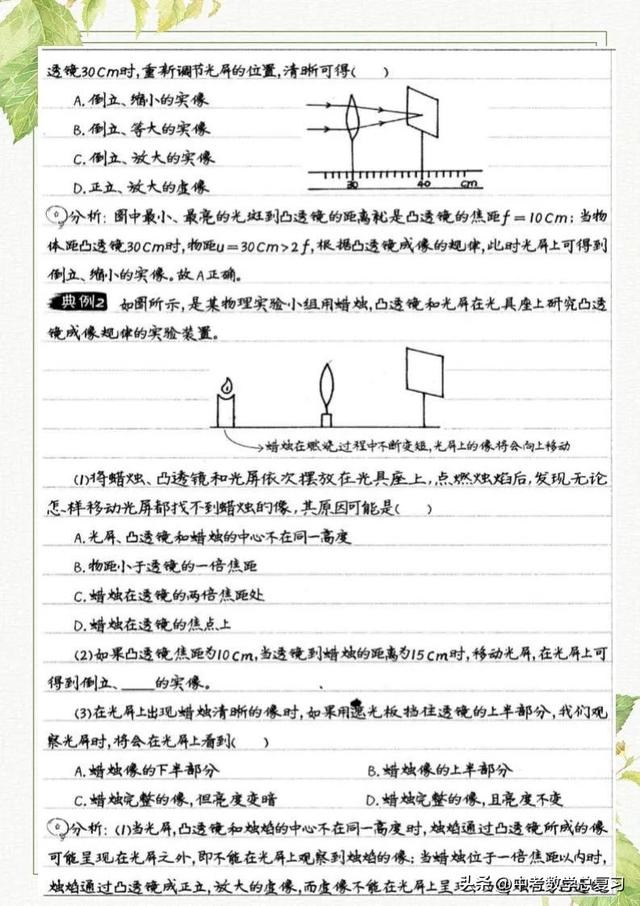 透镜30Cm时,重新调节光屏的位置,清晰可得(  )
A.倒立、缩小的实像
B.倒立、等大的实像
C.倒立、放大的实像
D.正立、放大的虚像
30 40 cm
分析:图中最小、最亮的光斑到凸透镜的距离就是凸透镜的焦距f=10Cm;当物
体距凸透镜30Cm时,物距u=30Cm>2f,根据凸透镜成像的规律,此时光屏上可得到
倒立、缩小的实像。故A正确。
典例2 如图所示,是某物理实验小组用蜡烛,凸透镜和光屏在光具座上研究凸透
镜成像规律的实验装置。
蜡烛在燃烧过程中不断变短,光屏上的像将会向上移动
(1)将蜡烛、凸透镜和光屏依次摆放在光具座上,点燃烛焰后,发现无论
怎样移动光屏都找不到蜡烛的像,其原因可能是(  )
A.光屏、凸透镜和蜡烛的中心不在同一高度
B.物距小于透镜的一倍焦距
C.蜡烛在透镜的两倍焦距处
D.蜡烛在透镜的焦点上
(2)如果凸透镜焦距为10cm,当透镜到蜡烛的距离为15cm时,移动光屏,在光屏上可
得到倒立、____的实像。
(3)在光屏上出现蜡烛清晰的像时,如果用遮光板挡住透镜的上半部分,我们观
察光屏时,将会在光屏上看到(  )
A.蜡烛像的下半部分 B.蜡烛像的上半部分
C.蜡烛完整的像,但亮度变暗 D.蜡烛完整的像,且亮度不变
分析:(1)当光屏,凸透镜和烛焰的中心不在同一高度时,烛焰通过凸透镜所成的像
可能呈现在光屏之外,即不能在光屏上观察到烛焰的像;当蜡烛位于一倍焦距以内时,
烛焰通过凸透镜成正立,放大的虚像,而虚像不能在光屏上呈现
头条@中考数学总复习